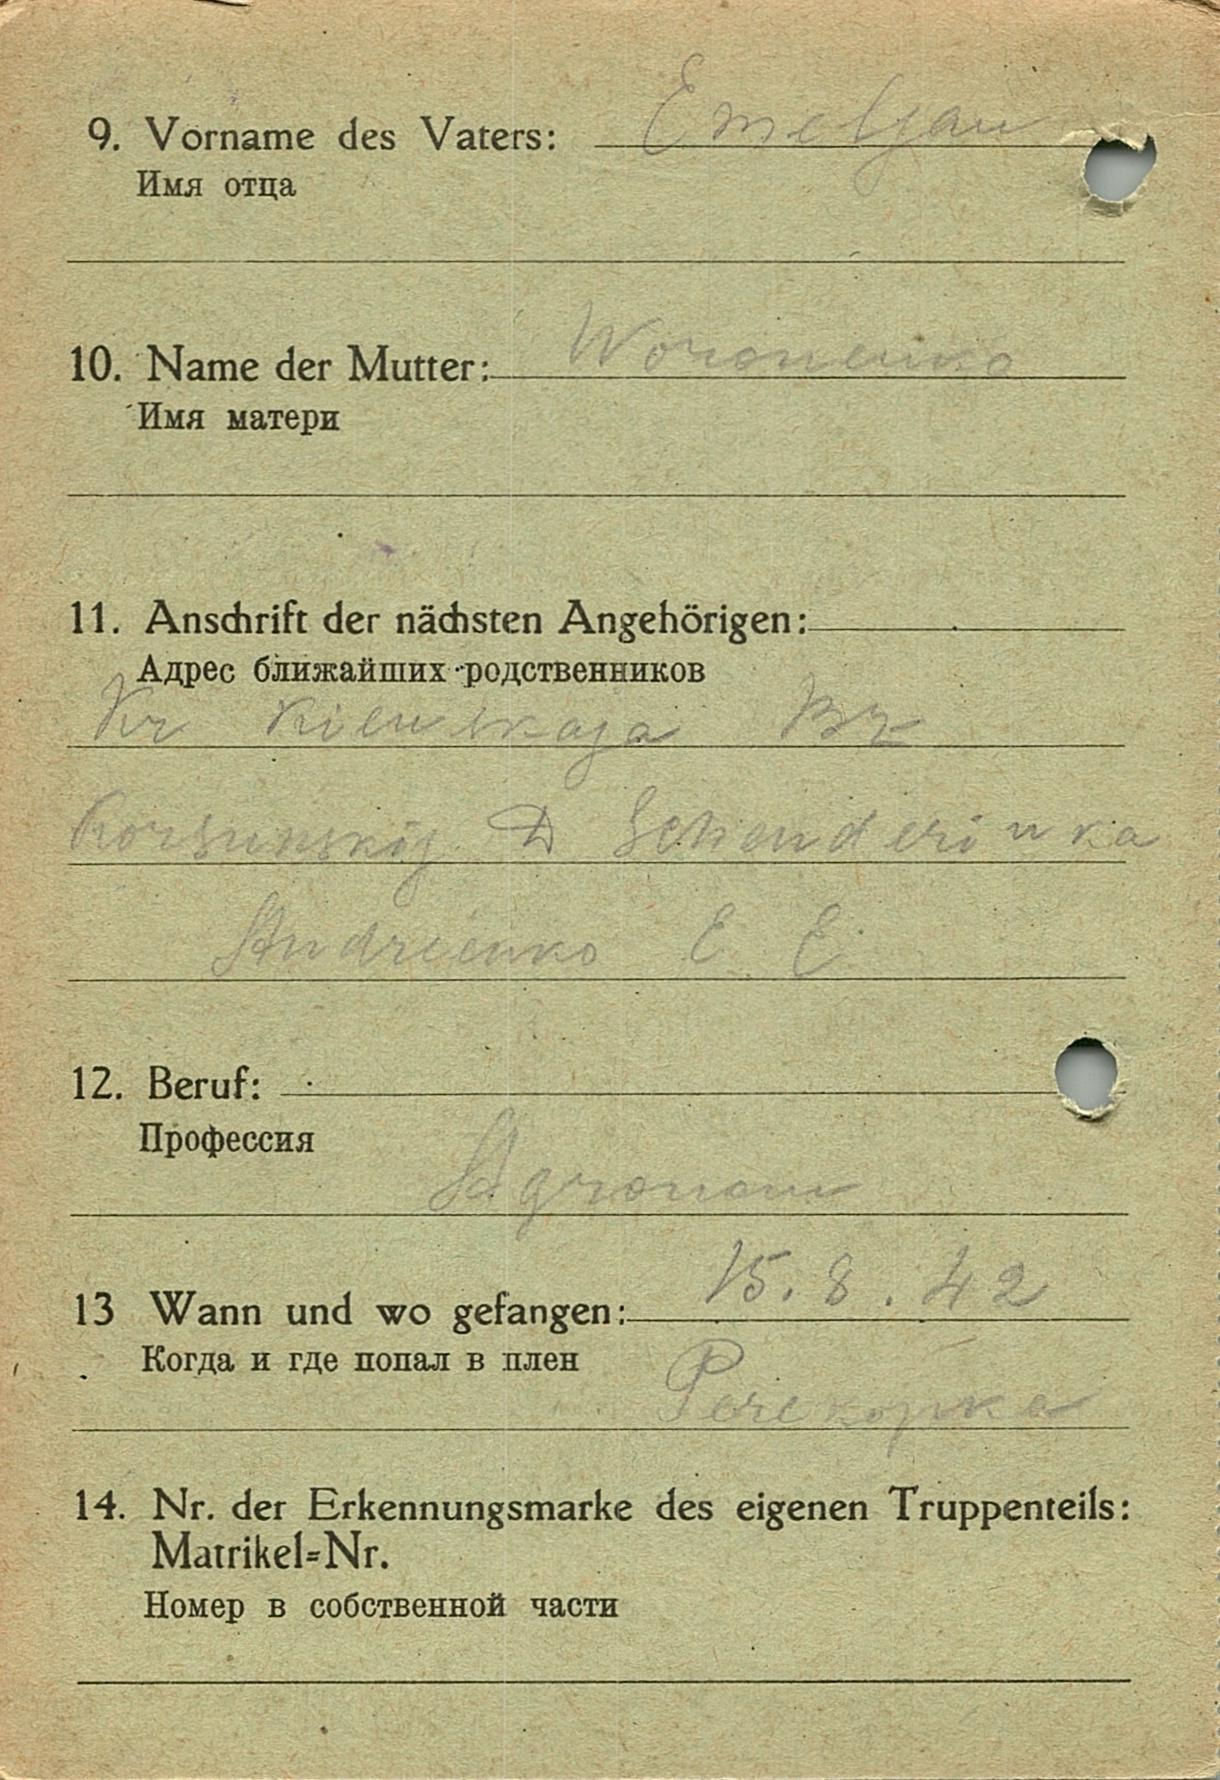 9. Vorname des Vaters: Emeljan
Имя отца
10. Name der Mutter: Woronenko
Имя матери
11. Anschrift der nächsten Angehörigen:
Адрес ближайших родственников
Kr Kiewskaja Bz
Korsunskij D Schenderinka
Andrienko E E
12. Beruf:
Профессия
Agronom
13 Wann und wo gefangen: 15.8.42
Когда и где попал в плен
Perekopka
14. Nr. der Erkennungsmarke des eigenen Truppenteils:
Matrikel=Nr.
Номер в собственной части